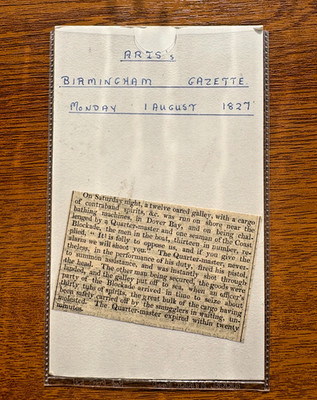 ARIS's
BIRMINGHAM GAZETTE
MONDAY 1 AUGUST 1827
On Saturday night, a twelve oared galley, with a cargo
of contraband spirits, &c. was run on shore near the
bathing machines, in Dover Bay, and on being chal-
lenged by a Quarter-master and one seaman of the Coast
Blockade, the men in the boat, thirteen in number, re-
plied, "It is folly to oppose us, and if you give the
alarm we will shoot you." The Quarter-master, never-
theless, in the performance of his duty, fired his pistol
to summon assistance, and was instantly shot through
the head. The other man being secured, the goods were
landed, and the galley put off to sea, when an officer's
party of the Blockade arrived in time to seize about
thirty tubs of spirits, the great bulk of the cargo having
been safely carried off by the smugglers in waiting, un-
molested. The Quarter-master expired within twenty
minutes.